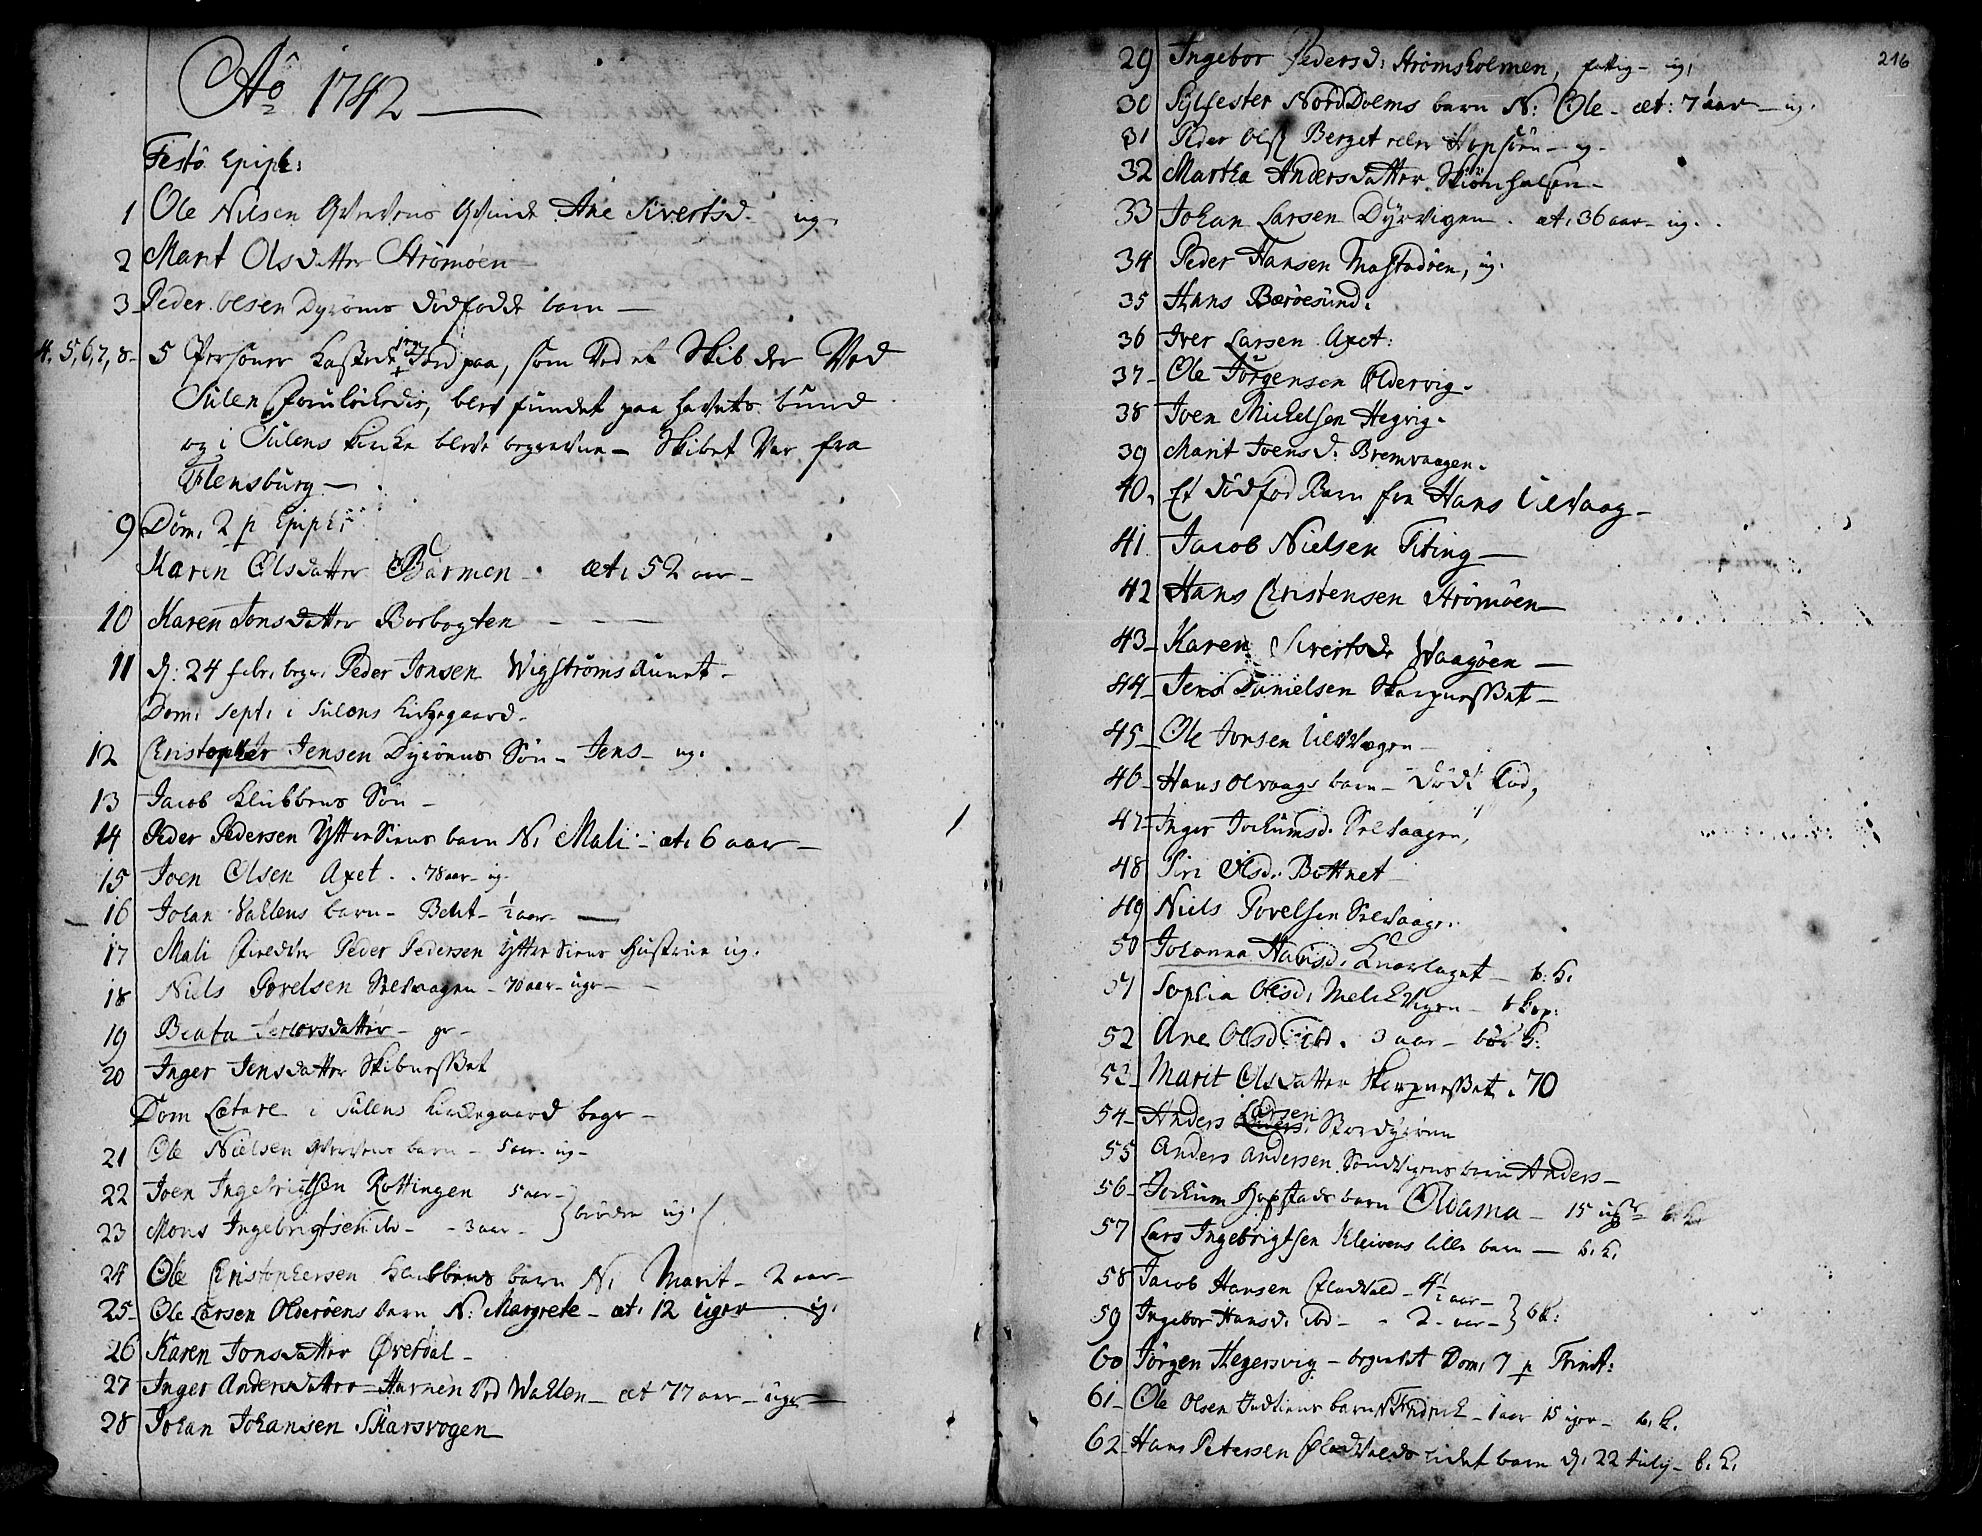 Aō 1742
Festô Epiph:
1 Ole Nilsen Qvinde Ane Sivertsd. ug.
2 Marit Olsdatter Strömöen
3 Peder Olsen Dyröens dödfödde barn
4. 5, 6, 7, 8 - 5 Personer kastede Jord paa, som Ved et Skib der Ved
Sülen forulückedis, blev fundet paa havets bund
og i Sülens kirke blev begravne - Skibet Var fra
Flensburg -
9 Dom. 2 p Epiph:
Karen Olsdatter Barmen - æt. 52 aar -
10 Karen Jonsdatter Borbogten
11 d: 24 febr. begr. Peder Jonsen Wigströmsaunet -
Dom. Sept. i Sülens kirkegaard -
12 Christopher Jensen Dyröens Sön - Jens - ug.
13 Jacob Klubbens Sön -
14 Peder Pedersen YtterSiens barn N. Mali - æt. 6 aar -
15 Joen Olsen Axet - 78 aar - ug.
16 Johan Vahlens barn - Behet - ½ aar -
17 Mali Peder Pedersen YtterSiens Hustrue ug.
18 Niels Povelsen Selvaagen - 70 aar - ugr -
19 Beata Iversdatter - gr -
20 Inger Jensdatter Skibnesset
Dom Lætare i Sülens kirkegaard begr -
21 Ole Nielsen barn - 5 aar - ug -
22 Joen Ingebrigtsen Rottingen 5 aar -
23 Mons Ingebrigtsen ibd - - 3 aar - } brödre ug.
24 Ole Christophersen Klubbens barn N. Marit - 2 aar -
25 - Ole Larsen Olderöens barn N: Margrete - æt. 12 uger ug.
26 Karen Jonsdatter Överdal -
27 Inger Andersdatter - Ved Wahlen - æt 77 aar - ugr -
28 Johan Johansen Skarsvogen
216
29 Ingebor Pedersd: Strömsholmen, fattig - ug.
30 Sylfester NordDolms barn N: Ole - æt: 7 aar - ug.
31 Peder Olss Berget Hopsön - ug -
32 Martha Andersdatter Skiönhalsen -
33 Johan Larsen Dyrvigen. æt. 36 aar - ug.
34 Peder Hansen Mastadöen, ug.
35 Hans Beröesund.
36 Iver Larsen Axet:
37 - Ole Jörgensen Oldervig.
38 Joen Michelsen Hegvig.
39 Marit Joensd: Bremvaagen.
40. Et dödföd Barn fra Hans Ulvaag -
41 Jacob Nielsen Titing -
42 Hans Christensen Strömöen
43 - Karen Sivertsdr Waagöen -
44 - Jens Danielsen Skarpnesset -
45 - Ole Jonsen Ulvaagen -
46 - Hans Olvaags barn - död föd,
47 - Inger Jochumsd. Selvaagen,
48 Siri Olsd. Bottnet -
49 Niels Povelsen Selvaagr.
50 Johanna Hansd. Knarlaget - b. k.
51 Sophia Olsd. Melchvigen - b kop:
52 Ane Olsd ibd. 3 aar - b. k.
53 - Marit Olsdatter Skarpnesset. 70
54 - Anders Larsen Stordyröen
55 Anders Andersen Sandvigens barn Anders -
56 - Jochum Hopstads barn Oldama - 15 ugr b. k.
57 Lars Ingebrigtsen Kleivens lille barn - b. k.
58 Jacob Hansen Fladvald - 4½ aar -
59 Ingebor Hansd. ibd - - 2 - aar - } b k:
60 Jörgen Hegersvig - begravet Dom. 7 p Trinit:
61 - Ole Olsen barn N. Fridrich - 1 aar 15 uger - b. k.
62 - Hans Petersen Fladvalds lidet barn d. 22 July - b. k.